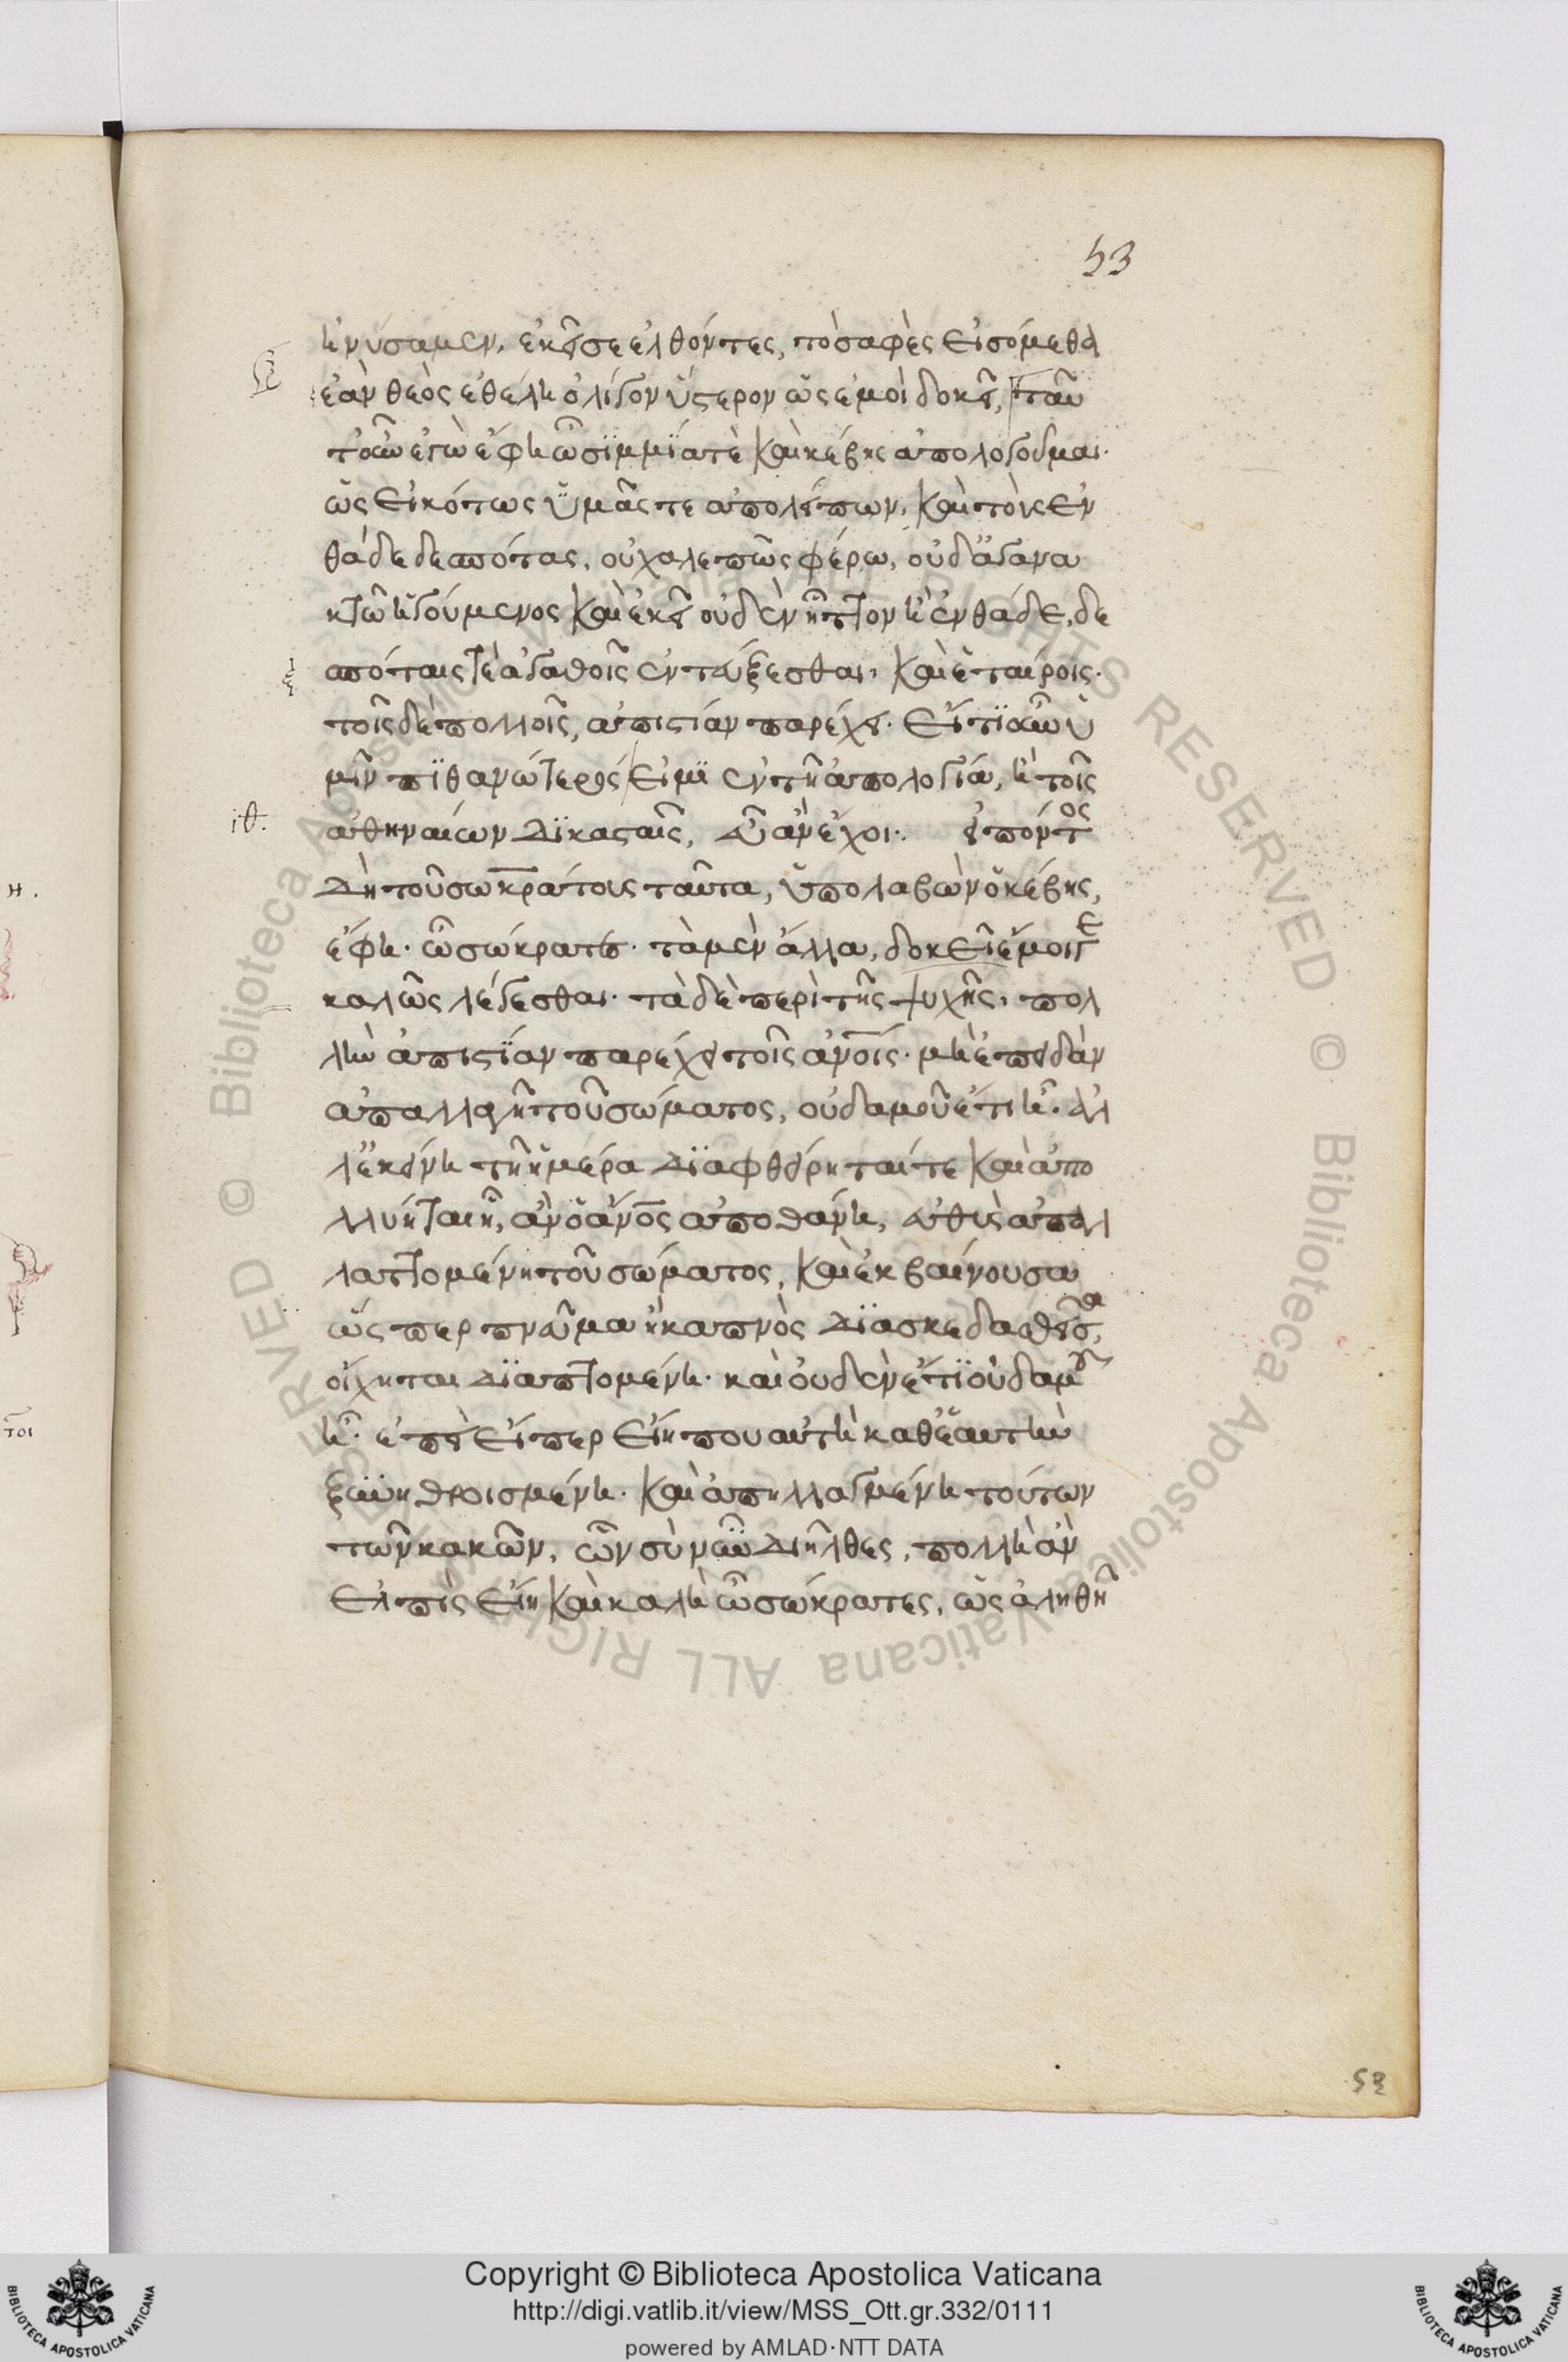 53
ἠνύσαμεν. ἐκεῖσε ἐλθόντες, τὸ σαφὲς εἰσόμεθα
ἐὰν θεὸς ἐθέλη ὀλίγον ὕστερον ὡς ἐμοὶ δοκεῖ, ταῦ
τ' οὖν ἐγὼ ἔφη ὦ σϊμμία τὲ καὶ κέβης ἀπολογοῦμαι.
ὡς εἰκότως ὑμᾶς τε ἀπολείπων, καὶ τοὺς ἐν
θάδε δεσπότας, οὐ χαλεπῶς φέρω, οὐδ' ἀγανα
κτῶ ἡγούμενος καὶ ἐκεῖ οὐδὲν ἧττον ἢ ἐνθάδε, δε
σπόταις τὲ ἀγαθοῖς ἐντεύξεσθαι, καὶ ἑταίροις.
τοῖς δὲ πολλοῖς, ἀπιστίαν παρέχει. εἴ τϊ οὖν ὑ
μῖν πϊθανώτερός εἰμϊ ἐν τῆ ἀπολογία, ἢ τοῖς
ιθ.
ἀθηναίων δϊκασταῖς, εὖ ἂν ἔχοι. εἰπόντος
δὴ τοῦ σωκράτους ταῦτα, ὑπολαβὼν ὁ κέβης,
ἔφη. ὦ σώκρατες. τὰ μὲν ἄλλα, δοκεῖ ἔμοιγε
καλῶς λέγεσθαι. τὰ δὲ περὶ τῆς ψυχῆς, πολ
λὴν ἀπιστϊαν παρέχει τοῖς ἀνοις. μὴ ἐπειδὰν
ἀπαλλαγῆ τοῦ σώματος, οὐδαμοῦ ἔτι ἦ. ἀλ
λ' ἐκείνη τῆ ἡμέρα δϊαφθείρηταί τε καὶ ἀπο
λλύηται ἧ, ἂν ὁ ἄνος ἀποθάνη, εὐθὺς ἀπαλ
λαττομένη τοῦ σώματος, καὶ ἐκβαίνουσα
ὥσπερ πνεῦμα ἢ καπνὸς δϊασκεδασθεῖσα,
οἴχηται δϊαπτομένη. καὶ οὐδὲν ἔτϊ οὐδαμοῦ
ἦ. ἐπεὶ εἴπερ εἴη που αὐτὴ καθ' ἑαυτὴν
ξυνηθροισμένη. καὶ ἀπηλλαγμένη τούτων
τῶν κακῶν, ὧν σὺ νῦν δὴ διῆλθες, πολλὴ ἂν
ἐλπὶς εἴη καὶ καλὴ ὦ σώκρατες, ὡς ἀληθῆ
53
Η.
τοι
Copyright © Biblioteca Apostolica Vaticana
http://digi.vatlib.it/view/MSS_Ott.gr.332/0111
powered by AMLAD·NTT DATA
BIBLIOTECA APOSTOLICA VATICANA
BIBLIOTECA APOSTOLICA VATICANA
© Biblioteca Apostolica Vaticana ALL RIGHTS RESERVED © Biblioteca Apostolica Vaticana ALL RIGHTS RESERVED